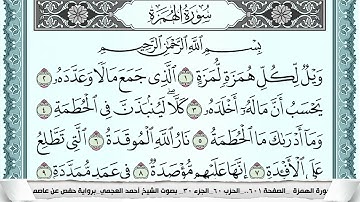 سُورَةُ الهُمَزَةِ
بِسْمِ اللَّهِ الرَّحْمَٰنِ الرَّحِيمِ
وَيْلٌ لِّكُلِّ هُمَزَةٍ لُّمَزَةٍ ١ الَّذِي جَمَعَ مَالًا وَعَدَّدَهُ ٢
يَحْسَبُ أَنَّ مَالَهُ أَخْلَدَهُ ٣ كَلَّا لَيُنبَذَنَّ فِي الْحُطَمَةِ ٤
وَمَا أَدْرَىٰكَ مَا الْحُطَمَةُ ٥ نَارُ اللَّهِ الْمُوقَدَةُ ٦ الَّتِي تَطَّلِعُ
عَلَى الْأَفْـِٔدَةِ ٧ إِنَّهَا عَلَيْهِم مُّؤْصَدَةٌ ٨ فِي عَمَدٍ مُّمَدَّدَةٍ ٩
ورة الهمزة .. الصفحة ٦٠١ .. الحزب ٦٠ .. الجزء ٣٠ .. بصوت الشيخ احمد العجمي برواية حفص عن عاصم